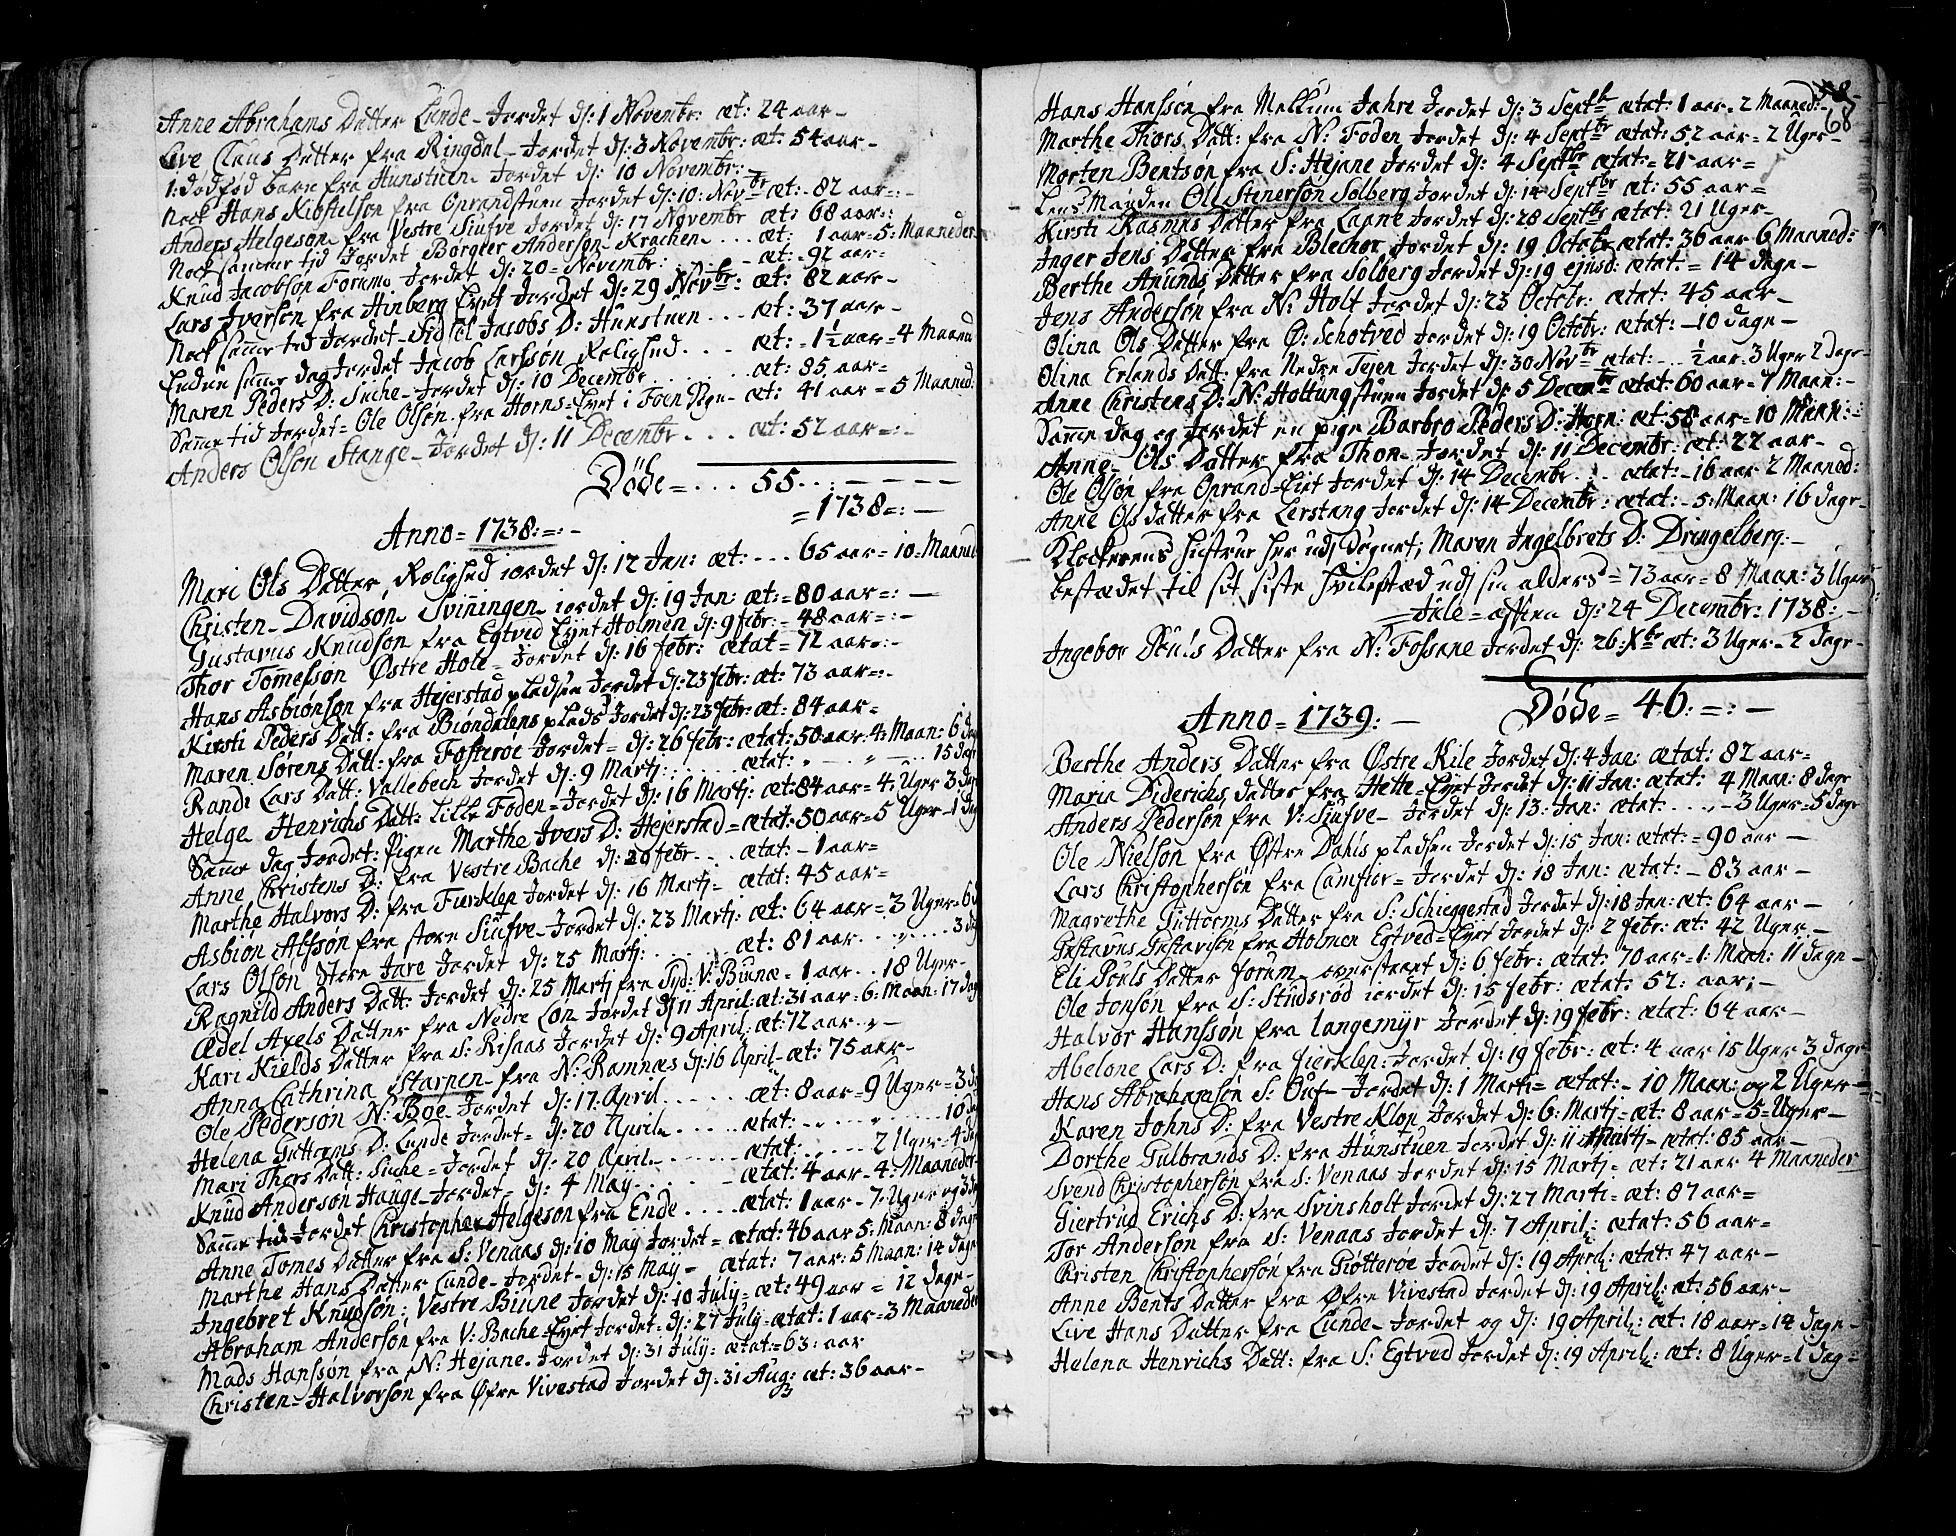 Anne Abrahams Datter Lunde – Jordet d: 1 Novembr: æt: 24 aar –
Live Claus Datter fra Ringdal – Jordet d: 3 Novembr: æt: 54 aar –
1: dødfød barn fra Hunstuen Jordet d: 10 Novembr: –
Nock Hans Kibstelsøn fra Oprandstuen Jordet d: 10: Novbr æt: 82 aar=: –
Anders Helgesøn fra Vestre Siufve Jordet d: 17 Novembr æt: 68 aar=:
Nock samme tid Jordet Borger Andersøn Krachen ... æt: 1 aar = 5: Maaneder
Knud Jacobsøn Forum Jordet d: 20 = Novembr: ... æt: – 92 aar=:
Lars Iversøn fra Hinberg Eyet Jordet d: 29 Novbr: æt: 82 aar –
Nock samme tid Jordet – Sidsel Jacobs D: Hunstuen ... æt: 37 aar –
Endnu samme dag Jordet Jacob Larssøn Rolighed .... æt: – 1½ aar = 4 Maaned
Maren Peders D: Suche – Jordet d: 10 Decembr ...... æt: 85 aar =
Samme tid Jordet = Ole Olsøn fra Horns = Eyet i Foen Sogn – æt: 41 aar = 5 Maaned:
Anders Olsøn Stange – Jordet d: 11 Decembr .... æt: 52 aar=: –
Døde = ... 55 ...: – – – –
= 1738 =: –
Anno = 1738: =: –
Mari Ols Datter, Rolighed iordet d: 12 Jan: æt: ... 65 aar = 10 = Maaned
Christen – Davidsøn – Sviningen iordet d: 19 Jan: æt: = 80 aar =: –
Gustavus Knudsøn fra Egtved Eyet Holmen d: 9 febr: – 48 aar =: –
Thor Tomessøn Østre Hole = Jordet d: 16 febr: ætat = 72 aar =: –
Hans Asbiønsøn fra Hejerstad pladsen Jordet d: 23 febr: æt: 73 aar =: –
Kirsti Peders Datt: fra Biøndalens plads Jordet d: 23 febr: æt: 84 aar =
Maren Sørens Datt: fra Fosserøe Jordet = d: 26 febr: ætat: 50 aar: 4: Maan: 6 dag
Randi Lars Datt: Vallebech Jordet d: 9 Martj: ..... ætat: „ – . „ – ... 15 dagr
Helge Henrichs Datt: Lille Foden = Jordet d: 16 Martj: æt: 84 aar = 4: Uger 3 dag
Samme dag Jordet: Pigen Marthe Ivers D: Hejerstad = ætat: 50 aar = 5 Uger – 1 dag
Anne Christens D: fra Vestre Bache d: 20 febr .... ætat: – 1 aar =
Marthe Halvors D: fra Fierklep Jordet d: 16 Martj = ætat: 45 aar =
Asbiøn Alfsøn fra store Siufve – Jordet d: 23 Martj: æt: 64 aar = 3 Uger = 6 d
Lars Olsøn Store Jare Jordet d: 25 Martj: ..... æt: 81 aar ... „ ... 3 dag
Ragnild Anders Datt: Jordet d: 25 Martj fra Syd: V: Biunæ = 1 aar .. 18 Uger –
Ædel Axels Datter fra Nedre Løn Jordet d: 11 April: æt: 31 aar = 6: Maan: 17 dag
Kari Kields Datter fra S: Risaas Jordet d: 9 April: æt: 72 aar . „ –
Anna Cathrina Starpen – fra N: Ramnæs d: 16 April – æt: 75 aar –
Ole Pedersøn N: Boe – Jordet d: 17: April ...... æt: 8 aar = 9 Uger = 3 d
Helena Guttorms D: Lunde Jordet = d: 20 April ..... ætat: . „ . . „ ..... 10 d
Mari Thors Datt: Suche = Jordet d: 20 April ....... ætat: ..... 2 Uger = 4 dag
Knud Andersøn Hauge – Jordet – d: 4 May ..... – ætat: 4 aar – 4: Maaneder
Samme tid Jordet Christopher Helgesøn fra Ende ..... ætat: 1 aar – 7: Uger og 3 da
Anne Tomes Datter fra S: Venaas d: 10 May Jordet = ætat: 46 aar 5: Maan: 8 dagr
Marthe Hans Datter Lunde – Jordet – d: 15 Maij = ætat: 7 aar: 5 Maan: 14 dagr
Ingebret Knudsøn: Vestre Biune Jordet d: 10 July = æt: 49 aar = 12 dagr –
Abraham Andersøn fra V: Bache = Eyet Jordet = d: 27 July = ætat: 1 aar = 3 Maaneder
Mads Hanssøn fra N: Hejane – Jordet d: 31 July: ætat: = 63: aar
Christen – Halvorsøn fra Øfre Vivestad Jordet d: 31 Aug: æt: 36 aar –
68
Hans Hanssøn fra Mellum Jahre Jordet d: 3 Septbr ætat: 1 aar . 2 Maaned:
Marthe Thors Datt: fra N: Foden Jordet d: 4 Septbr ætat: 52 aar = 2 Uger –
Morten Bentsøn fra S: Hejane Jordet d: 4 Septbr ætat: = 21 aar =
Lens Manden Oll Stenersøn Solberg Jordet d: 14 Septbr æt: 55 aar =
Kirsti Rasmus Datter fra Laane Jordet d: 28 Septbr ætat: 21 Uger –
Inger Jens Datter fra Blechor Jordet d: 19 Octobr ætat: 36 aar 6 Maaned:
Berthe Anunds Datter fra Solberg Jordet d: 19 ejusd: ætat: = 14 dage –
Jens Andersøn fra N: Holt Jordet d: 23 Octobr: ætat: 45 aar –
Olina Ols Datter fra Ø: Schotved Jordet d: 19 Octobr: ætat: – 10 dage –
Olina Erlands Datt: fra Nedre Tejen Jordet d: 30 Novbr ætat: – .. ½ aar . 3 Uger 2 dagr
Anne Christens D: N: Holtungstuen Jordet d: 5 Decembr ætat: 60 aar = 7 Maan: –
Samme dag og Jordet en pige Barbro Peders D: Horn: æt: 58 aar = 10 Maan: –
Anne – Ols Datter fra Thon – Jordet d: 11 Decembr: æt: 22 aar –
Ole Olsøn fra Oprand = Eyet Jordet d: 14 Decembr .. . ætat: – 16 aar 2 Maaned:
Anne Olsdatter fra Lerstang Jordet d: 14 Decembr: ætat: – 5: Maan: 16 dagr –
Klockerens hustrue her udj Sognet, Maren Ingelbrets D: Dringelberg: –
bestædet til sit siste hvilestæd udj sin alders = 73 aar = 8 Maan: 3 Uger
= Jule = afften d: 24 Decembr: 1738: –
Ingebor Pouls Datter fra N: Fossane Jordet d: 26: Xbr æt: 3 Uger – 2 dagr –
Døde = 46: = : –
Anno = 1739: –
Berthe Anders Datter fra Østre Kile Jordet d: 4 Jan: ætat: 82 aar =
Maria Diderichs datter fra Hette = Eyet Jordet d: 11 Jan: ætat: 4 Maan: 8 dagr
Anders Pedersøn fra V: Siufve – Jordet d: 13: Jan: ætat: ... „ – 3 Uger = 5 dagr
Ole Nielsøn fra Østre Dahls pladsen Jordet d: 15 Jan: ætat: = 90 aar –
Lars Christophersøn fra Camflor = Jordet d: 18 Jan: ætat: – 83 aar –
Magrethe Guttorms Datter fra S: Schieggestad Jordet d: 18 Jan: æt: 64 aar –
Gustavus Gustavisøn fra Holmen Egtved = Eyet Jordet d: 2 febr: æt: 42 Uger –
Eli Pouls Datter Forum – overstaaet d: 6 febr: ætat: 70 aar = 1: Maan: 11 dage –
Ole Jonsøn fra S: Studsrød iordet d: 15 febr: ætat: 52: aar: –
Halvor Hanssøn fra Langemyr Jordet d: 19 febr: ætat: 64 aar –
Abelone Lars D: fra Fierklep: Jordet d: 19 febr: æt: 4 aar 15 Uger 3 dagr
Hans Abrahamsøn S: Ouf – Jordet d: 1 Martj = ætat: – 10 Maan: og 2 Uger –
Karen Johns D: fra Vestre Klon Jordet d: 6: Martj = æt: 8 aar = 5 = Uger –
Dorthe Gulbrands D: fra Hunstuen Jordet d: 11 Martj – ætat: 85 aar –
Svend Christophersøn fra S: Venaas Jordet d: 15 Martj = æt: 21 aar 4 Maaneder
Giertrud Erichs D: fra Svinsholt Jordet d: 27 Marti = æt: 87 aar =
Tor Andersøn fra S: Venaas Jordet d: 7 April: ætat: 56 aar =
Christen Christophersøn fra Giøtterøe Jordet d: 19 April: ætat: 47 aar –
Anne Bents Datter fra Øfre Vivestad Jordet d: 19 April: æt: 56 aar –
Live Hans Datter fra Lunde – Jordet og d: 19 April: æt: 18 aar = 14 dage –
Helena Henrichs Datt: fra S: Egtved Jordet d: 19 April: æt: 8 Uger = 1 dag =